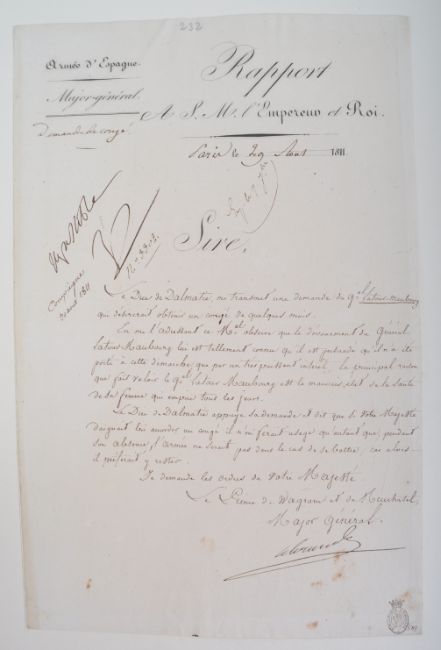 232
Armée d'Espagne.
Major-général.
Demande de congé
Rapport
A S. M. l'Empereur et Roi.
Paris le 29 Aout 1811.
Compiègne
aout 1811
Sire,
Le Duc de Dalmatie, me transmet une demande du Gal Latour-Maubourg
qui désirerait obtenir un congé de quelques mois.
En me l'adressant ce Mal observe que le dévouement du Général
Latour Maubourg lui est tellement connu qu'il est persuadé qu'il n'a été
porté à cette démarche que par un très puissant intérêt. La principale raison
que fait valoir le Gal Latour Maubourg est le mauvais état de la santé
de sa femme qui empire tous les jours.
Le Duc de Dalmatie appuye sa demande et dit que si Votre Majesté
daignait lui accorder un congé il n'en ferait usage qu'autant que, pendant
son absence, l'armée ne serait pas dans le cas de se battre, car alors
il préférerait y rester.
Je demande les ordres de Votre Majesté
Le Prince de Wagram et de Neuchatel
Major Général.
Alexandre